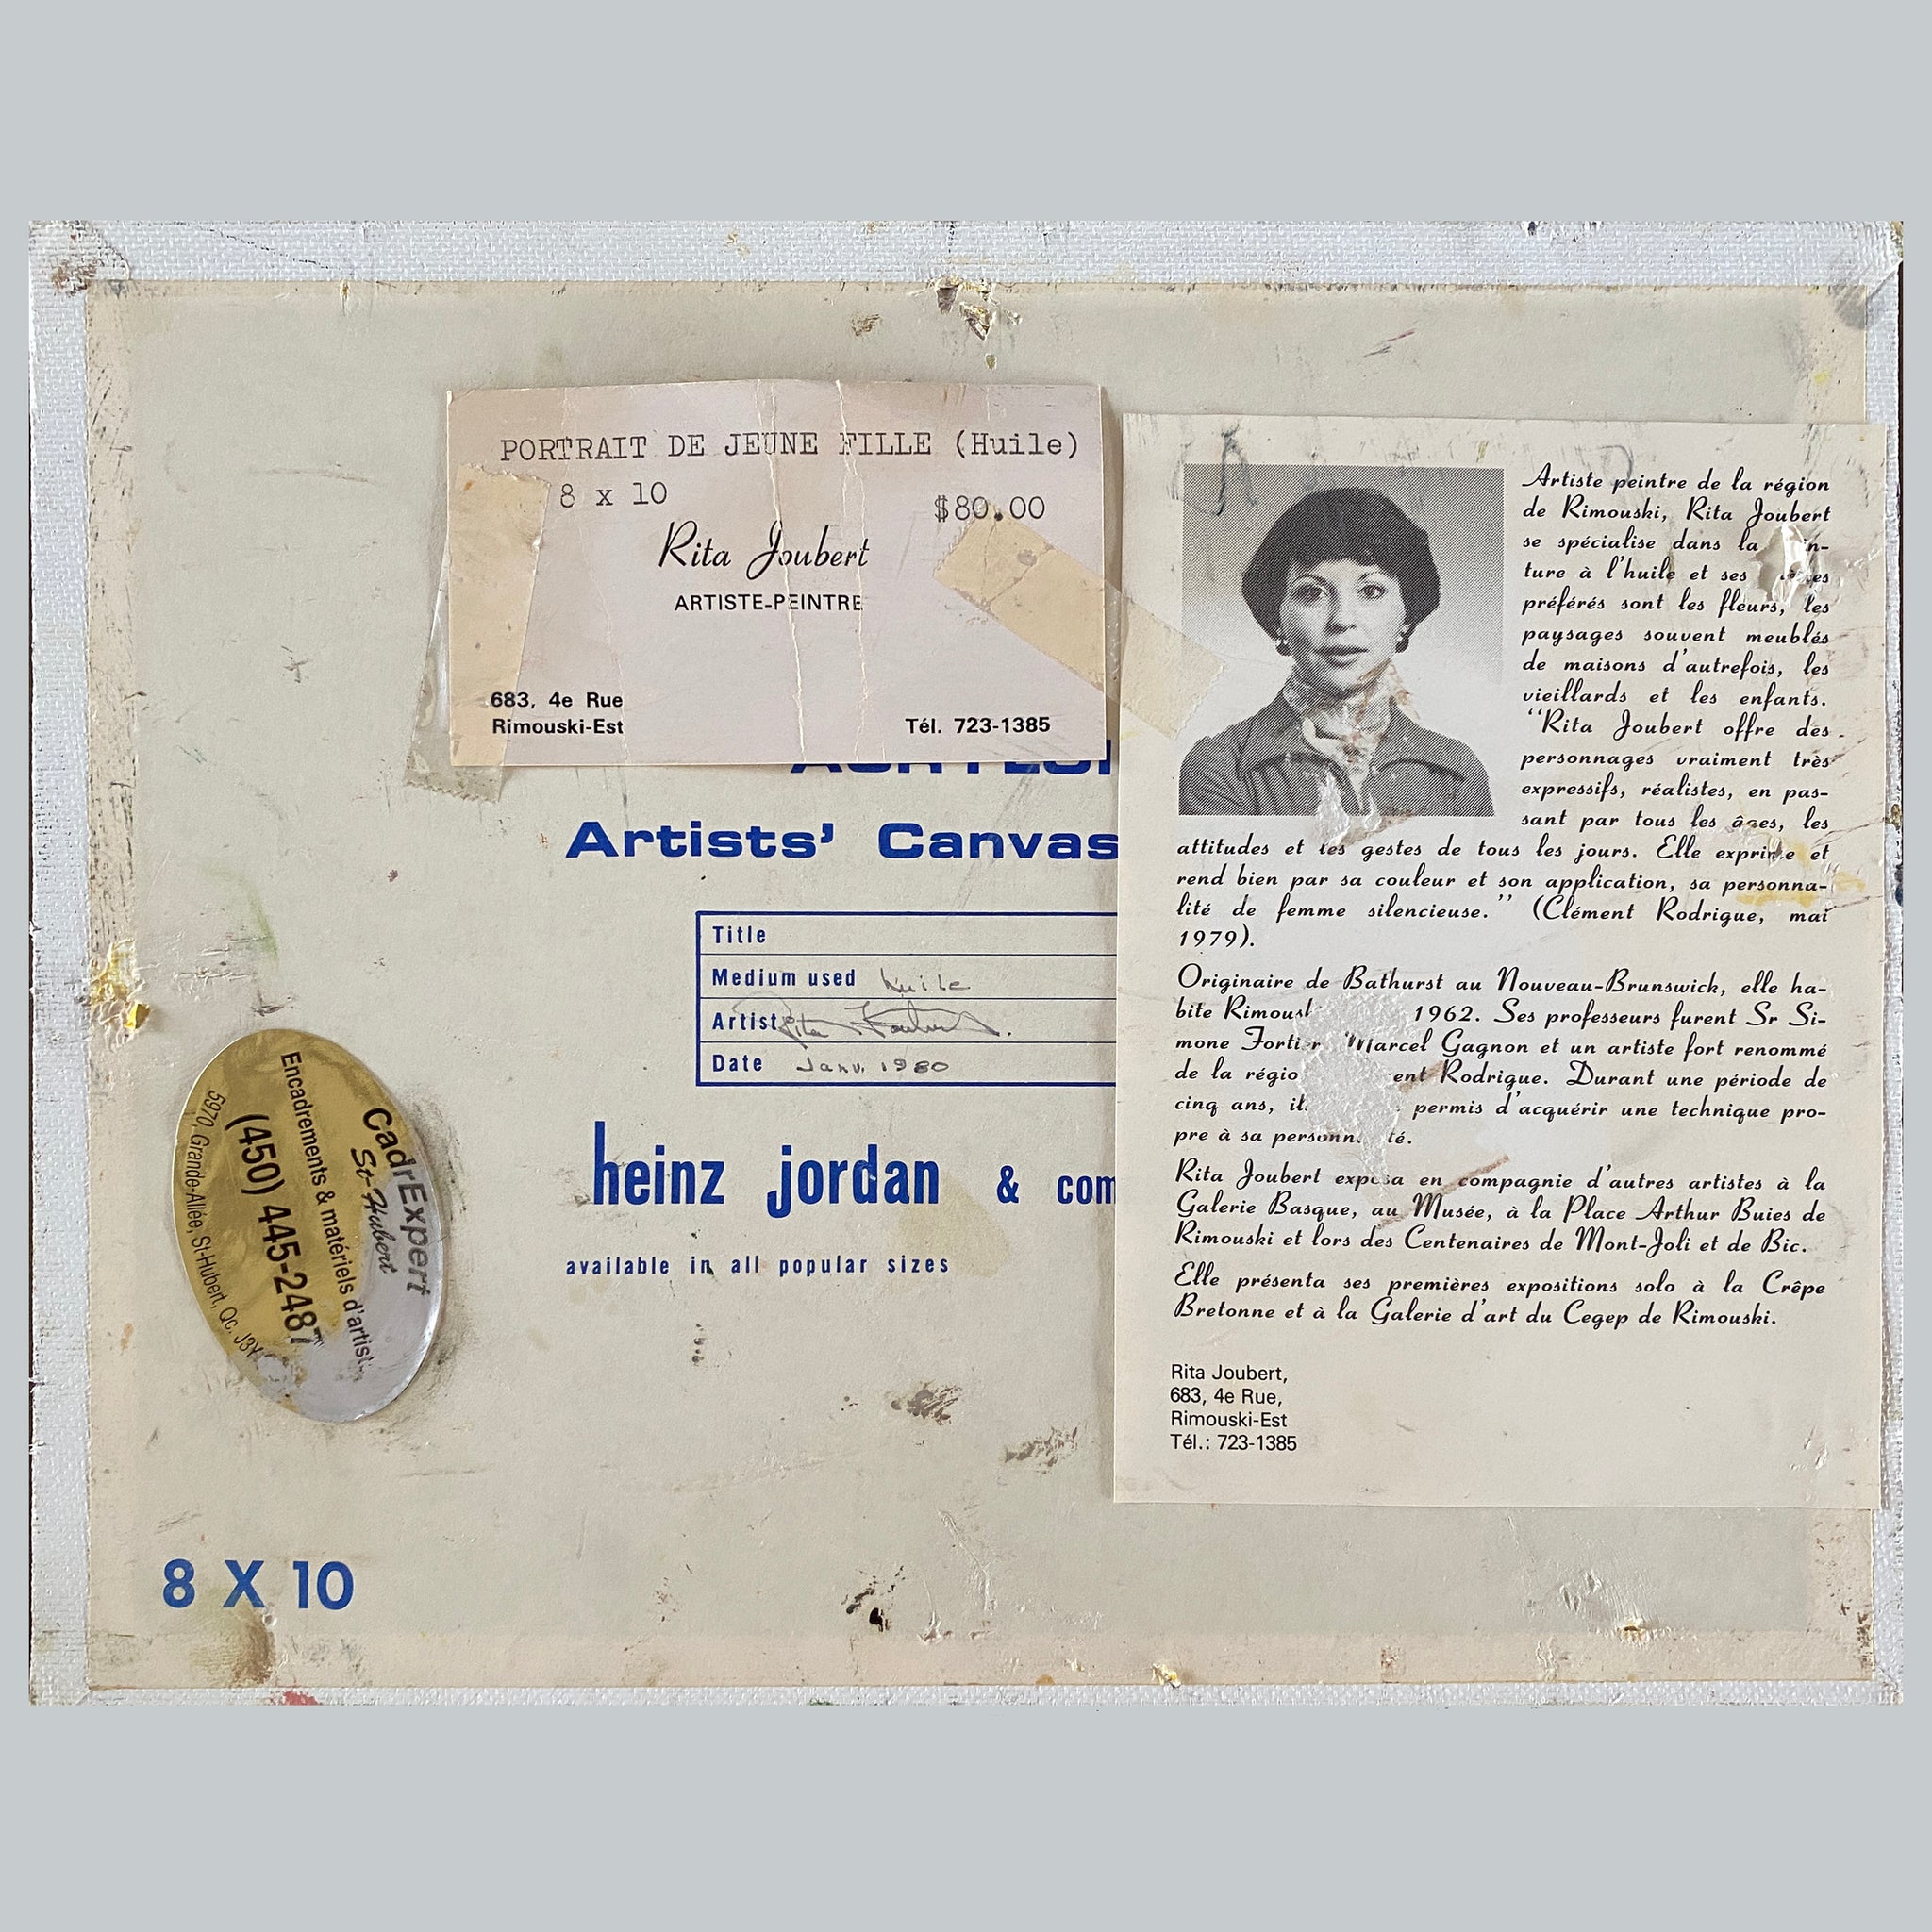 PORTRAIT DE JEUNE FILLE (Huile)
8 x 10
$80.00
Rita Joubert
ARTISTE-PEINTRE
683, 4e Rue
Rimouski-Est
Tél. 723-1385
Artists' Canvas
Title
Medium used huile
Artist Rita Joubert
Date Janv. 1980
heinz jordan & com
available in all popular sizes
CadrExpert
St-Hubert
Encadrements & matériels d'artist
(450) 445-2487
5970, Grande-Allée, St-Hubert, Qc. J3Y
8 X 10
Artiste peintre de la région
de Rimouski, Rita Joubert
se spécialise dans la n-
ture à l'huile et ses
préférés sont les fleurs, les
paysages souvent meublés
de maisons d'autrefois, les
vieillards et les enfants.
"Rita Joubert offre des
personnages vraiment très
expressifs, réalistes, en pas-
sant par tous les âges, les
attitudes et les gestes de tous les jours. Elle exprime et
rend bien par sa couleur et son application, sa personna-
lité de femme silencieuse." (Clément Rodrigue, mai
1979).
Originaire de Bathurst au Nouveau-Brunswick, elle ha-
bite Rimousk 1962. Ses professeurs furent Sr Si-
mone Fortier Marcel Gagnon et un artiste fort renommé
de la régio ent Rodrigue. Durant une période de
cinq ans, il permis d'acquérir une technique pro-
pre à sa personn té.
Rita Joubert exposa en compagnie d'autres artistes à la
Galerie Basque, au Musée, à la Place Arthur Buies de
Rimouski et lors des Centenaires de Mont-Joli et de Bic.
Elle présenta ses premières expositions solo à la Crêpe
Bretonne et à la Galerie d'art du Cegep de Rimouski.
Rita Joubert,
683, 4e Rue,
Rimouski-Est
Tél.: 723-1385